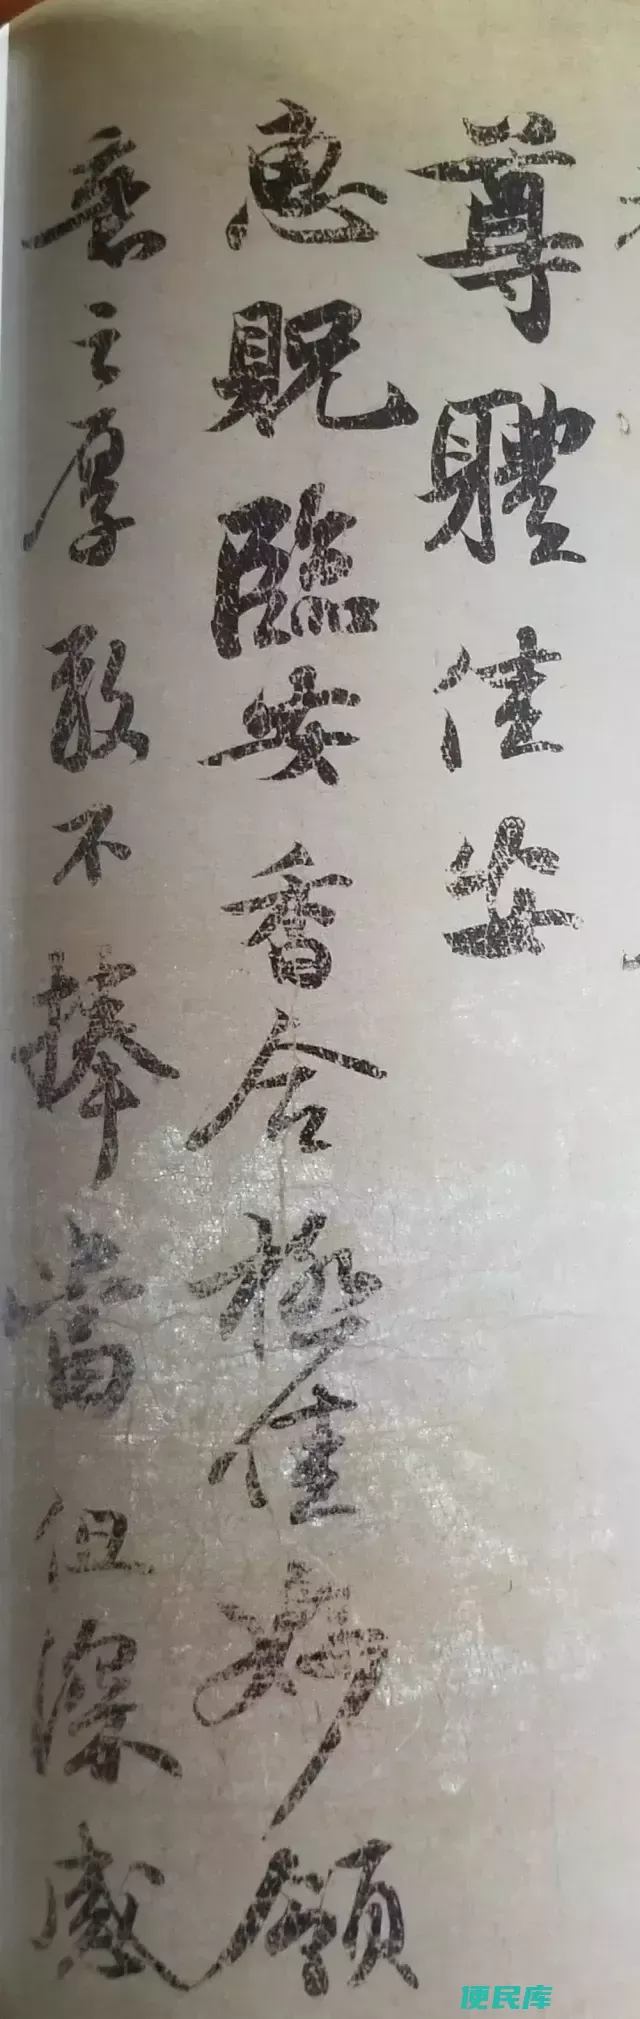 尊體佳安
惠貺臨安香合極佳妙領
意之厚敢不捧當但深感
便民库